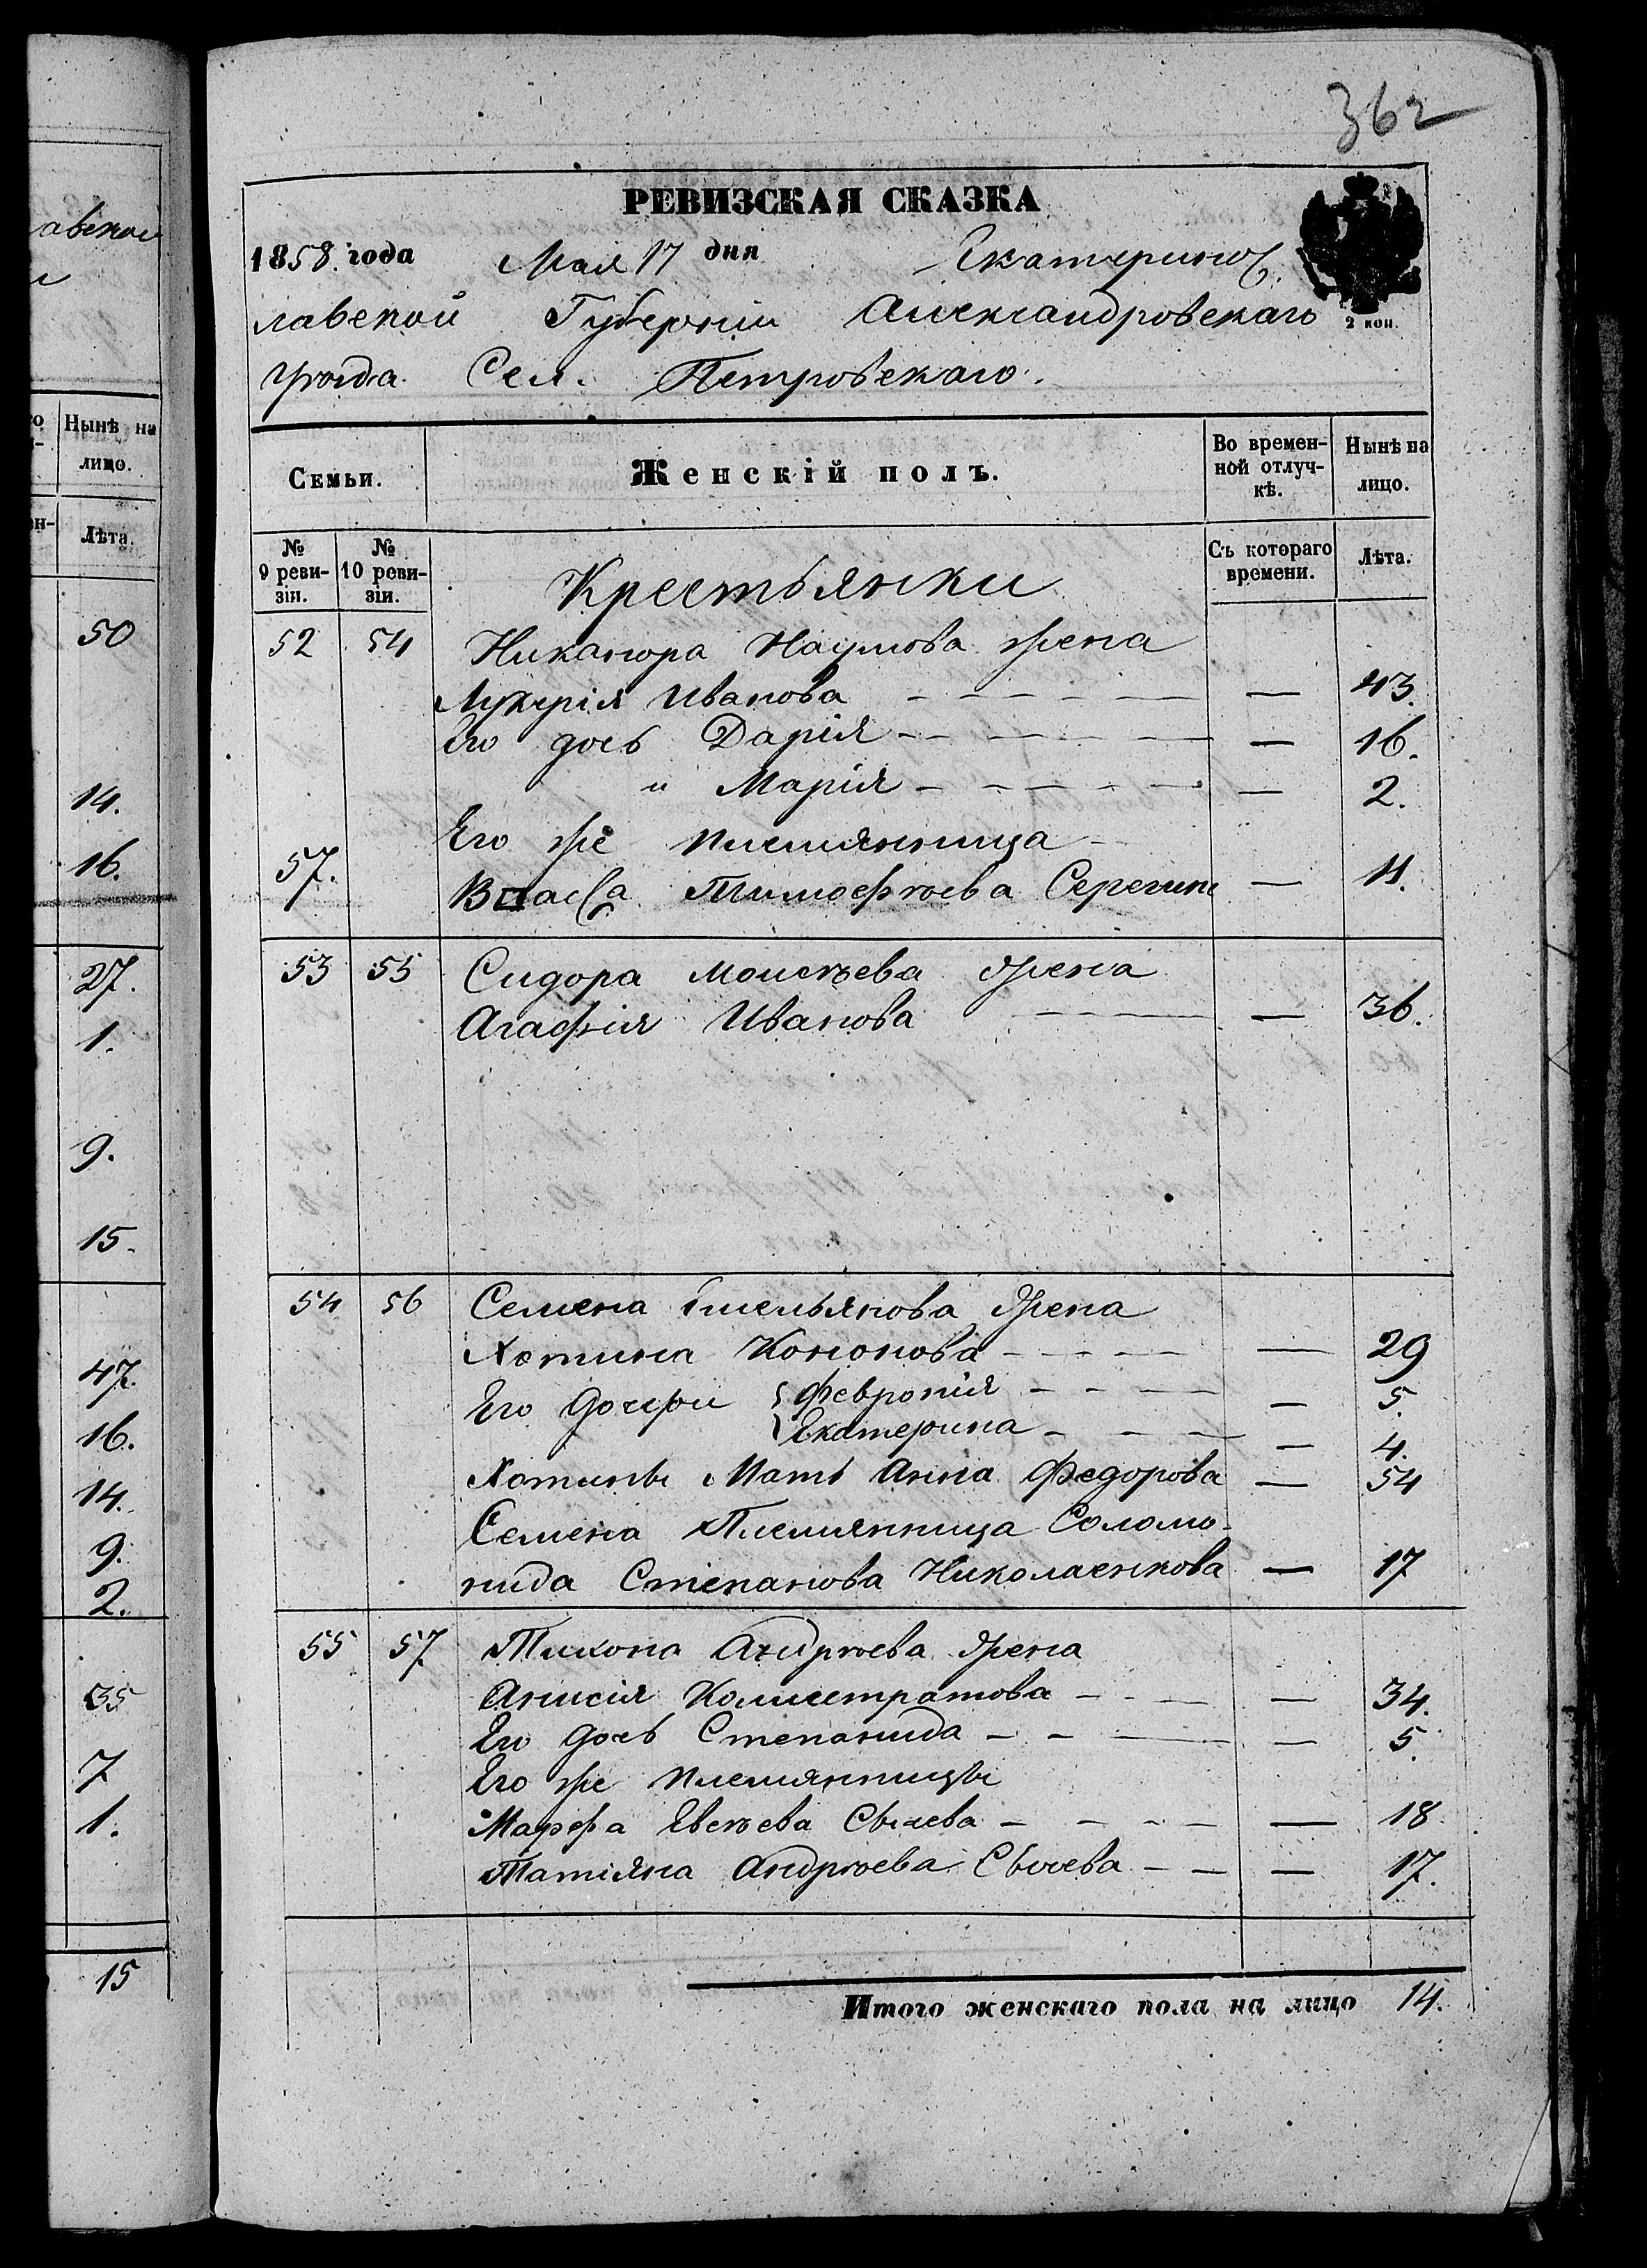 362
РЕВИЗСКАЯ СКАЗКА
1858 года Мая 17 дня Екатеринос
лавской Губернии Александровскаго
2 коп.
уѣзда Сел. Петровскаго.
Семьи. Женскій полъ. Во времен-ной отлуч-кѣ. Нынѣ на лицо.
№ 9 реви-зіи. № 10 реви-зіи. Съ котораго времени. Лѣта.
Крестьянки
52 54 Никанора Наумова жена
Лукерія Иванова — 43.
Его дочь Дарія — 16.
" Марія — 2.
Его же племянница
57. Васса Тимофѣева Серегина — 11.
53 55 Сидора Моисѣева жена
Агафія Иванова — 36.
54 56 Семена Емельянова жена
Хотина Кононова — 29
Его дочери Февронія — 5.
Екатерина — 4.
Хотины Мать Анна Федорова — 54
Семена Племянница Соломо-
нида Степанова Николаенкова — 17
55 57 Тихона Андрѣева жена
Анисія Колистратова — 34.
Его дочь Степанида — 5.
Его же племянницы
Марфа Евсѣева Сычева — 18
Татіяна Андрѣева Сычева — 17.
Итого женскаго пола на лицо 14.
авской
Нынѣ на
лицо.
Лѣта.
50
14.
16.
27.
1.
9.
15.
47.
16.
14.
9.
2.
35
7
1.
15